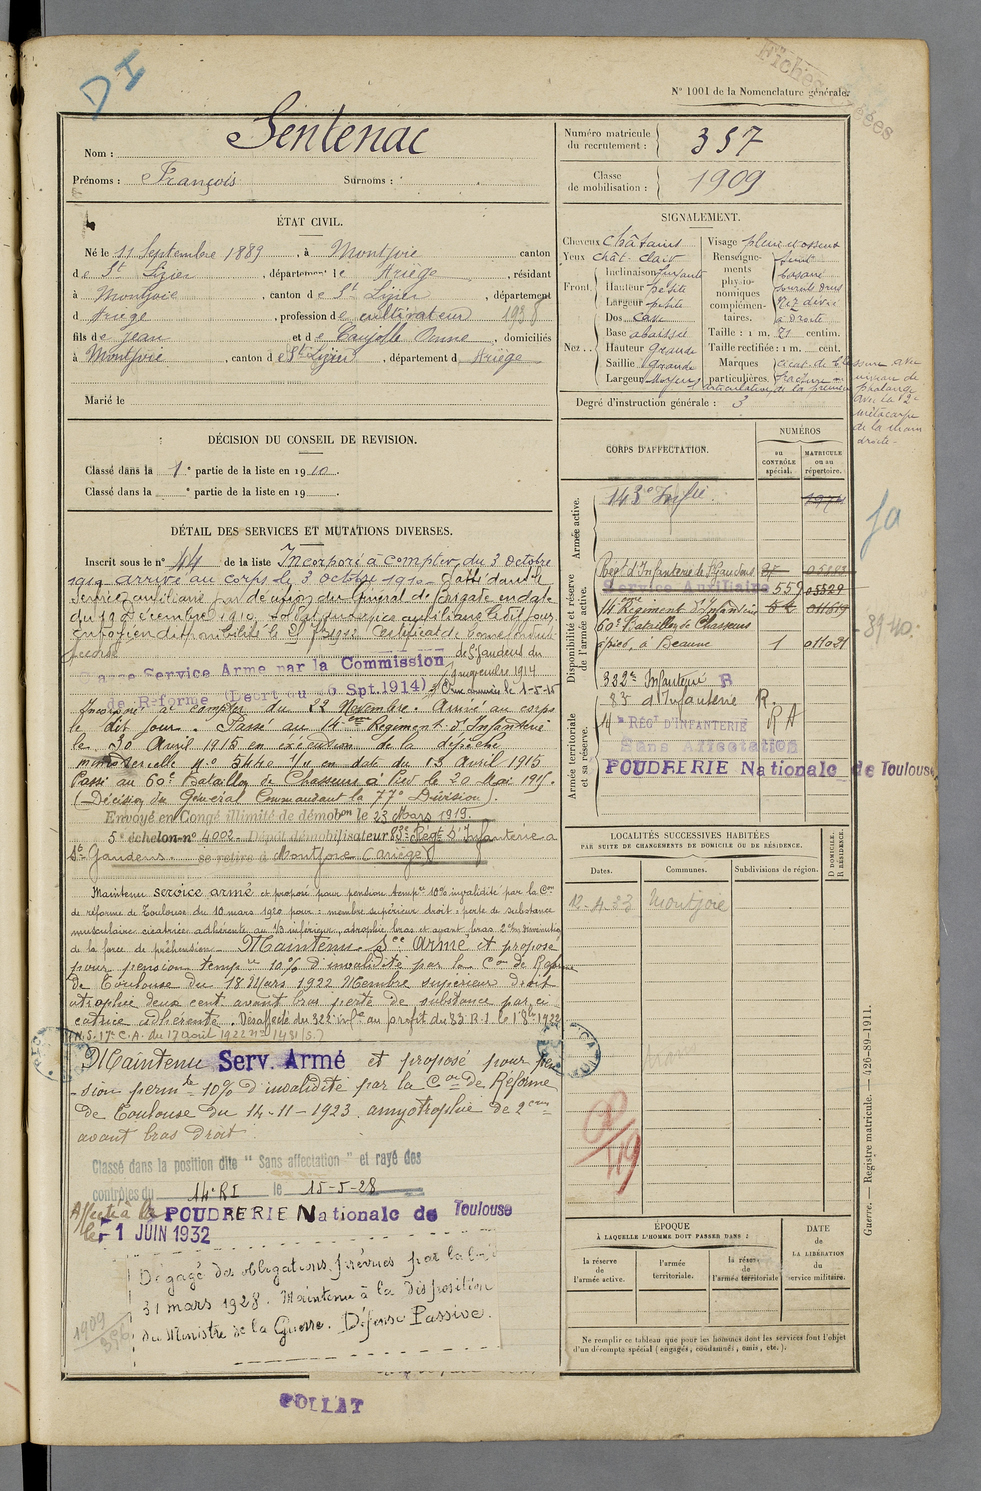 DI
Fiches
N° 1001 de la Nomenclature générale.
Nom : Sentenac
Prénoms : François Surnoms :
Numéro matricule du recrutement : 357
Classe de mobilisation : 1909
ÉTAT CIVIL.
Né le 11 Septembre 1889, à Montjoie canton
de St Lizier, département de Ariège, résidant
à Montjoie, canton de St Lizier, département
d Ariège, profession de cultivateur 1938
fils de Jean et de Caujolle Anne, domiciliés
à Montjoie, canton de St Lizier, département d Ariège
Marié le
SIGNALEMENT.
Cheveux châtains
Yeux chât. clair
Front. Inclinaison fuyante
Hauteur petite
Largeur petite
Nez. Dos cave
Base abaissée
Hauteur Grande
Saillie Grande
Largeur Moyenne
Visage plein et osseux
Renseignements physionomiques complémentaires.
basané
sourcils drus
Nez dévié
à Droite
Taille : 1 m. 71 centim.
Taille rectifiée : 1 m. cent.
Marques particulières. cicat. de blessure avec
fracture au niveau de
articulation de la première phalange
avec la 2e
métacarpe
de la main
droite.
Degré d'instruction générale : 3
DÉCISION DU CONSEIL DE REVISION.
Classé dans la 1e partie de la liste en 1910.
Classé dans la e partie de la liste en 19
CORPS D'AFFECTATION.
NUMÉROS
au CONTRÔLE spécial.
MATRICULE ou au répertoire.
Armée active.
143e Inf ie
Disponibilité et réserve de l'armée active.
Regt d'Infanterie de St Gaudens
Service Auxiliaire 559
14eme Régiment d'Infanterie
60e Bataillon de Chasseurs
à pied, à Beaune 1
8940.
Armée territoriale et sa réserve.
322e Infanterie R
83 d'Infanterie R.
14e REGt D'INFANTERIE RA
Sans Affectation
POUDRERIE Nationale de Toulouse
DÉTAIL DES SERVICES ET MUTATIONS DIVERSES.
Inscrit sous le n° 44 de la liste Incorporé à compter du 3 octobre
1910 arrivé au corps le 3 octobre 1910. Passé dans le
service auxiliaire par décision du Général de Brigade en date
du 19 décembre 1910. Soldat service auxiliaire le dit jour.
Envoyé en disponibilité le Certificat de bonne conduite
accordé
Classé Service Armé par la Commission de St Gaudens du
de Réforme (Décret du 26 Spt. 1914)
Incorporé à compter du 22 Novembre. Arrivé au corps
le dit jour. Passé au 14eme Régiment d'Infanterie
le 30 Avril 1915 en exécution de la dépêche
ministérielle N° 5440 1/11 en date du 13 Avril 1915
Passé au 60e Bataillon de Chasseurs à Pied le 20 Mai 1915.
(Décision du Général Commandant la 77e Division).
Envoyé en Congé illimité de démobon le 23 Mars 1919.
5e échelon n° 4002. Dépôt démobilisateur 83e Régt d'Infanterie à
St Gaudens. se retire à Montjoie (Ariège)
Maintenu service armé et proposé pour pension tempre 10% invalidité par la Con
de réforme de Toulouse du 10 mars 1920 pour : membre supérieur droit : perte de substance
musculaire cicatrice adhérente au 1/3 inférieur, atrophie bras et avant bras 2 cm diminution
de la force de préhension. Maintenu Sce armé et proposé
pour pension tempre 10% d'invalidité par la Con de Réforme
de Toulouse du 18 Mars 1922 Membre supérieur droit
atrophie deux cent. avant bras perte de substance par ci
catrice adhérente. Désaffecté du 322e infie au profit du 83 R.I. le 1er 8bre 1922
(N.S. 17e C.A. du 17 août 1922 n° 1431/S.)
Maintenu Serv. Armé et proposé pour pen
sion permte 10% d'invalidité par la Con de Réforme
de Toulouse du 14-11-1923. amyotrophie de 2 cms
avant bras droit.
Classé dans la position dite "Sans affectation" et rayé des
contrôles du 14e RI le 15-5-28
Affecté à la POUDRERIE Nationale de Toulouse
le 1 JUIN 1932
Dégagé des obligations prévues par la loi
31 mars 1928. Maintenu à la disposition
du Ministre de la Guerre. Défense Passive.
1909
396
LOCALITÉS SUCCESSIVES HABITÉES
PAR SUITE DE CHANGEMENTS DE DOMICILE OU DE RÉSIDENCE.
Dates. Communes. Subdivisions de région. D DOMICILE. R RÉSIDENCE.
12-4-33 Montjoie
ÉPOQUE
À LAQUELLE L'HOMME DOIT PASSER DANS :
la réserve de l'armée active.
l'armée territoriale.
la réserve de l'armée territoriale
DATE de LA LIBÉRATION du service militaire.
Ne remplir ce tableau que pour les hommes dont les services font l'objet
d'un décompte spécial (engagés, condamnés, omis, etc.).
Guerre. — Registre matricule. — 426-89-1911.